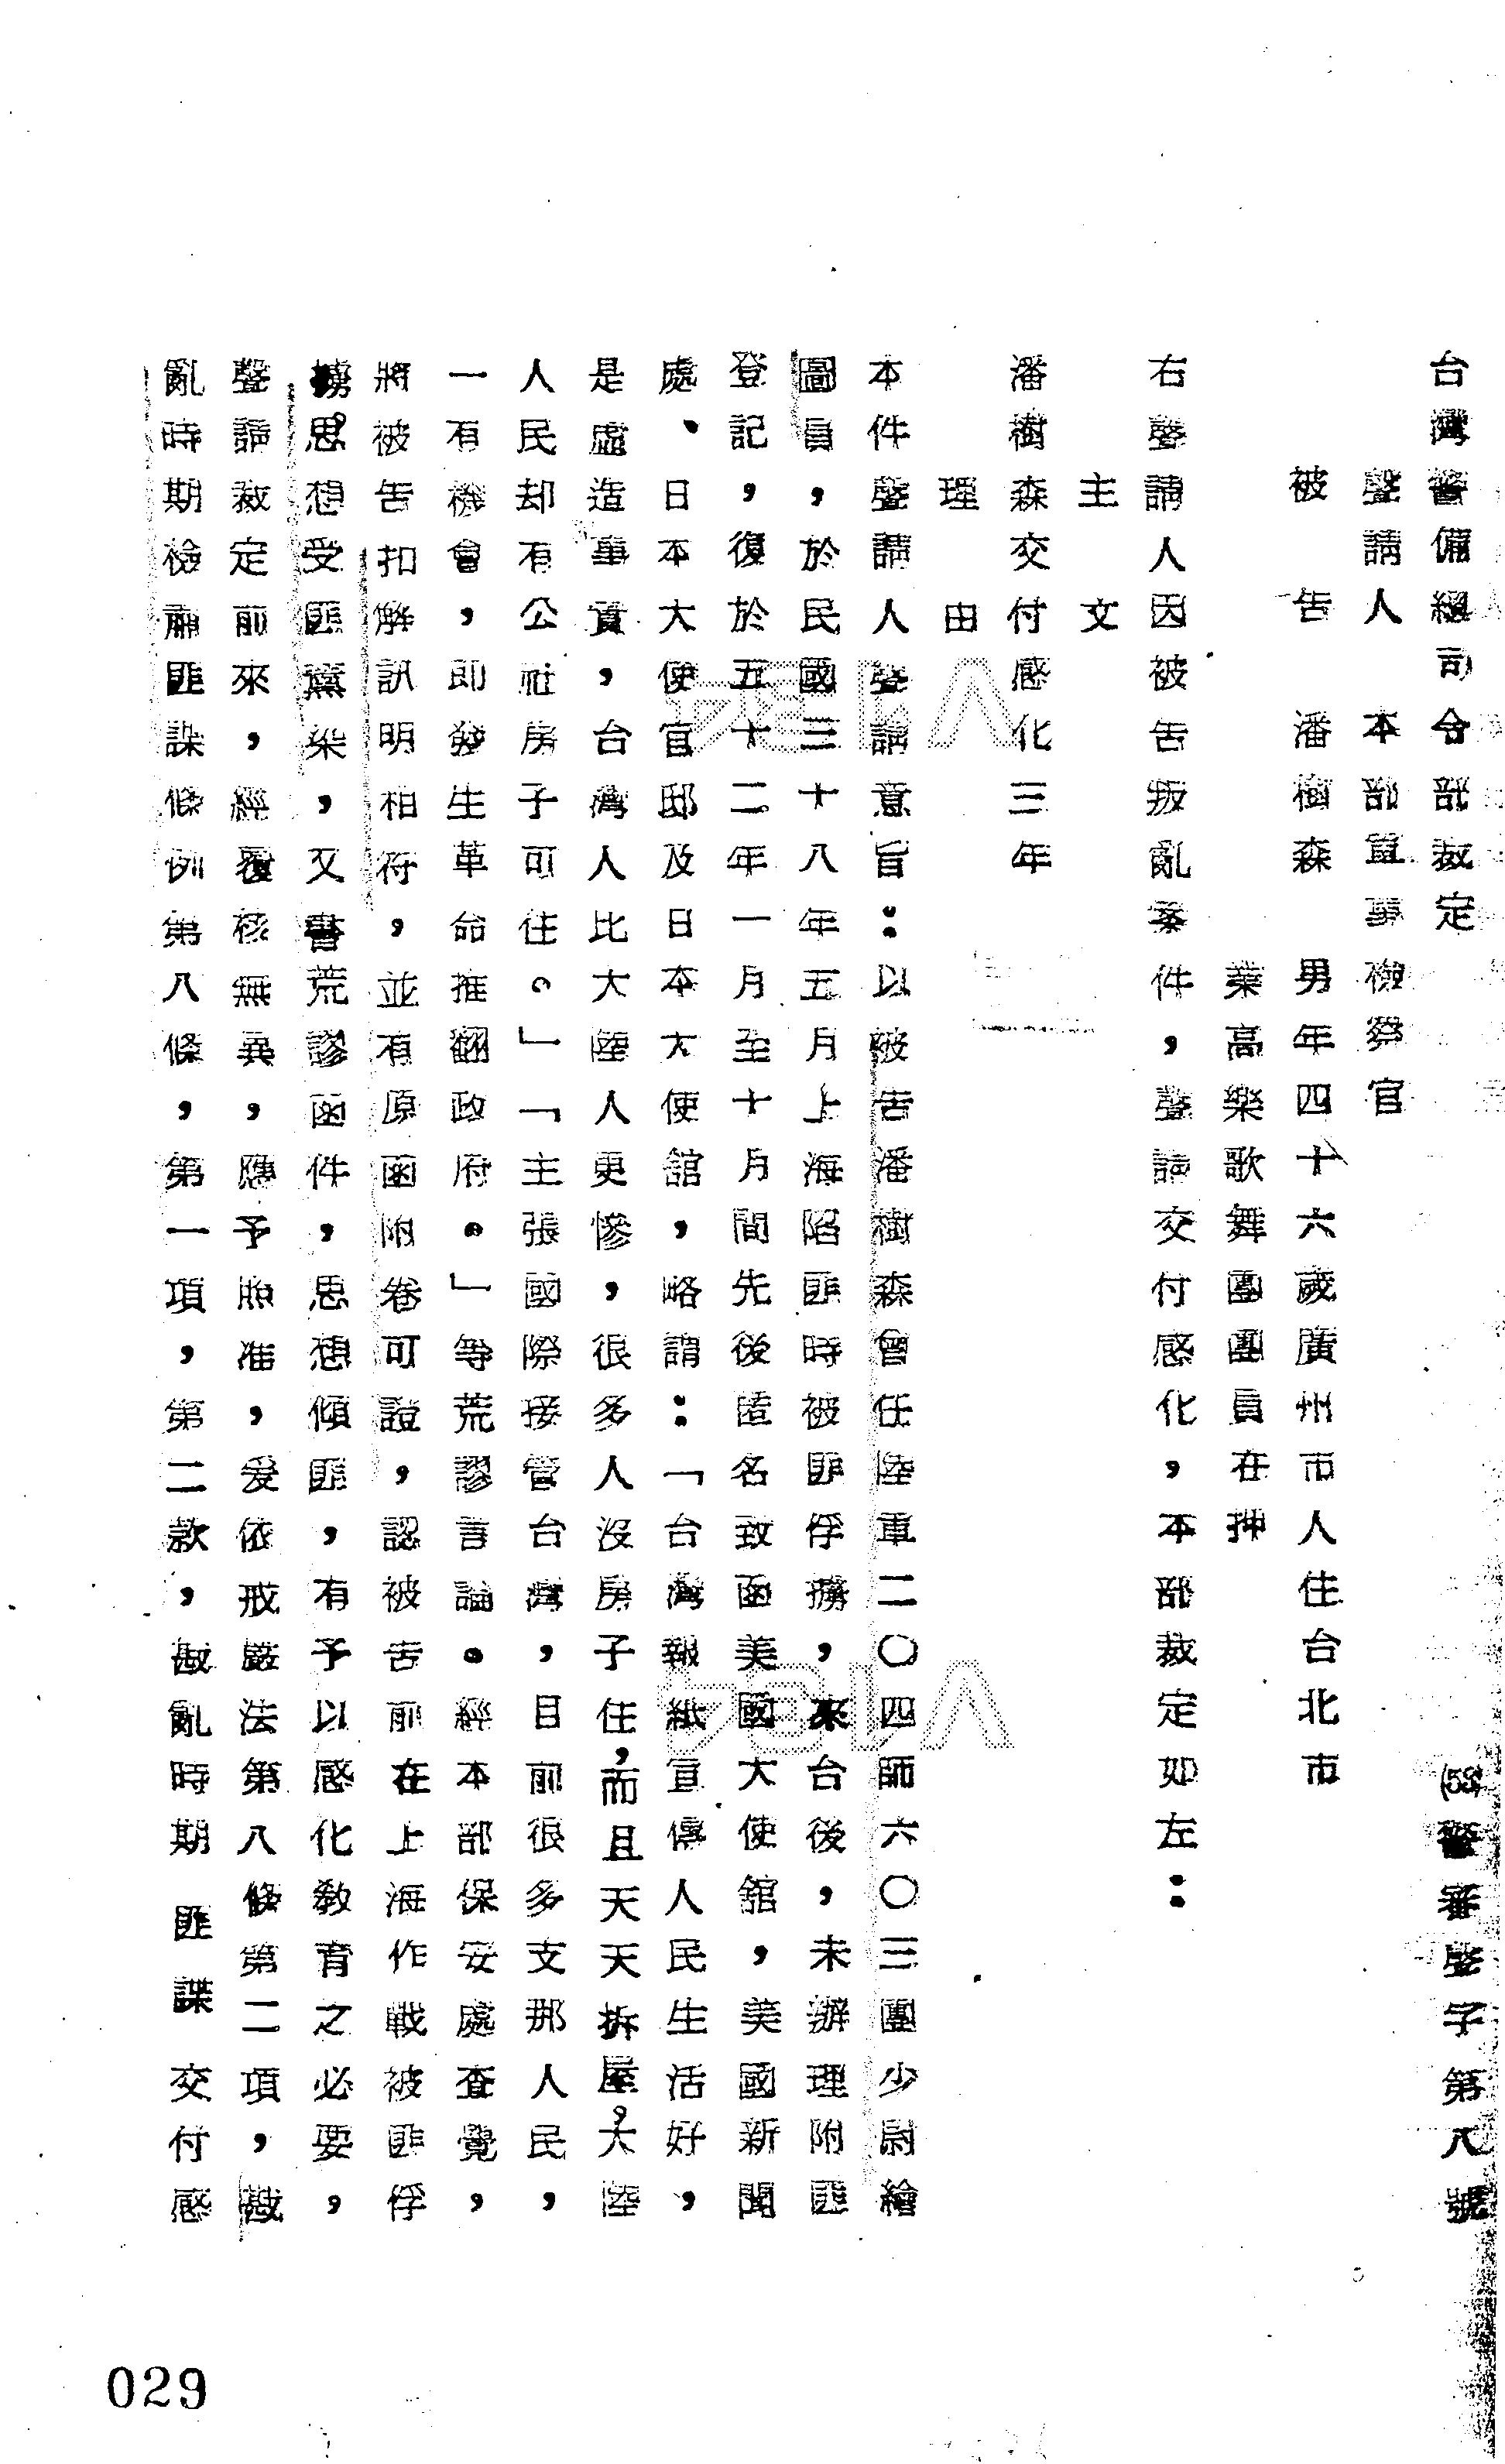 台灣警備總司令部裁定 (53)警審聲字第八號
聲請人 本部軍事檢察官
被告 潘樹森 男年四十六歲廣州市人住台北市
業高樂歌舞團團員在押
右聲請人因被告叛亂案件，聲請交付感化，本部裁定如左：
主文
潘樹森交付感化三年
理由
本件聲請人聲請意旨：以被告潘樹森曾任陸軍二〇四師六〇三團少尉繪
圖員，於民國三十八年五月上海陷匪時被匪俘擄，來台後，未辦理附匪
登記，復於五十二年一月至十月間先後匿名致函美國大使舘，美國新聞
處、日本大使官邸及日本大使舘，略謂：「台灣報紙宣傳人民生活好，
是虛造事實，台灣人比大陸人更慘，很多人沒房子住，而且天天拆屋，大陸
人民却有公社房子可住。」「主張國際接管台灣，目前很多支那人民，
一有機會，即發生革命推翻政府。」等荒謬言論。經本部保安處查覺，
將被告扣解訊明相符，並有原函附卷可證，認被告前在上海作戰被匪俘
擄。思想受匪薰染，又書荒謬函件，思想傾匪，有予以感化教育之必要，
聲請裁定前來，經覆核無異，應予照准，爰依戒嚴法第八條第二項，戡
亂時期檢肅匪諜條例第八條，第一項，第二款，戡亂時期匪諜交付感
029